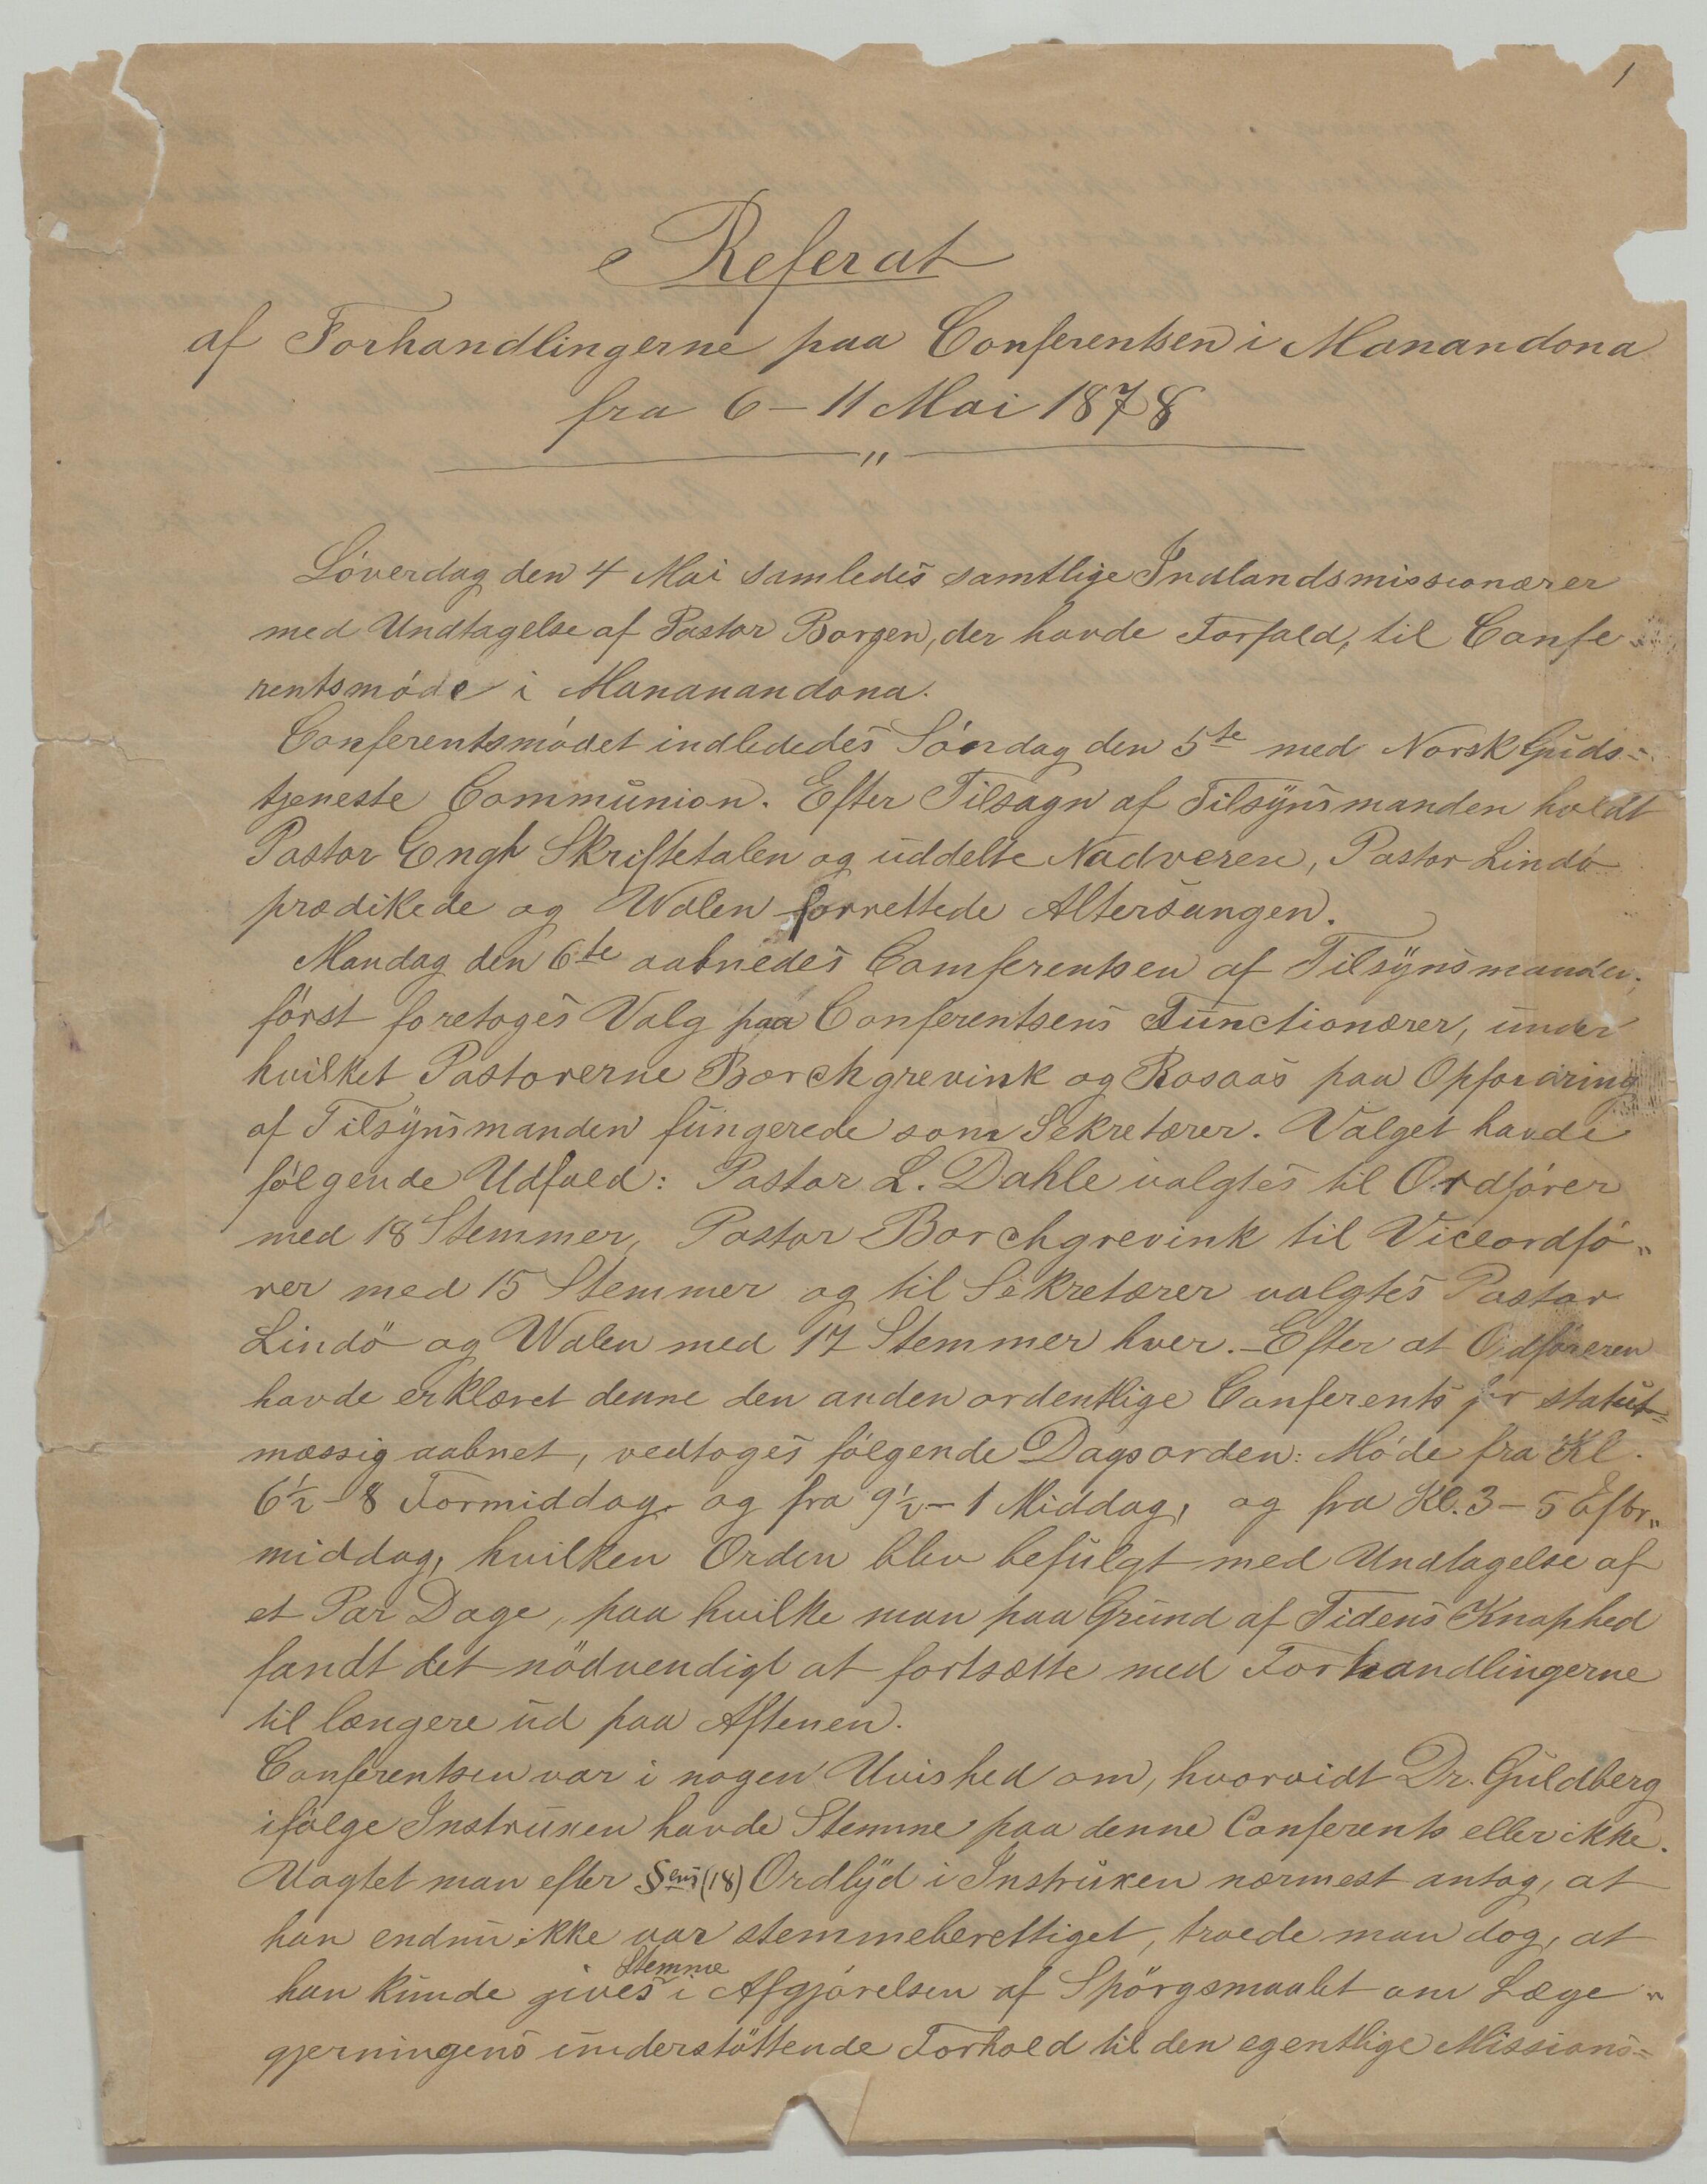 1
Referat
af Forhandlingerne paa Conferentsen i Manandona
fra 6 – 11 Mai 1878
"
Löverdag den 4 Mai samledes samtlige Indlandsmissionærer
med Undtagelse af Pastor Borgen, der havde Forfald, til Confe„
rentsmöde i Mananandona.
Conferentsmödet indlededes Söndag den 5te med Norsk Guds=
tjeneste Communion. Efter Tilsagn af Tilsynsmanden holdt
Pastor Engh Skriftetalen og uddelte Nadveren, Pastor Lindö
prædikede og Walen forrettede Altersangen.
Mandag den 6te aabnedes Comferentsen af Tilsynsmanden;
först foretoges Valg paa Conferentsens Functionærer, under
hvilket Pastorerne Borchgrevink og Rosaas paa Opfordring
af Tilsynsmanden fungerede som Sekretærer. Valget havde
fölgende Udfald: Pastor L. Dahle valgtes til Ordförer
med 18 Stemmer, Pastor Borchgrevink til Viceordfö„
rer med 15 Stemmer og til Sekretærer valgtes Pastor
Lindö og Walen med 17 Stemmer hver. – Efter at Ordföreren
havde erklæret denne den anden ordentlige Conferents for statut=
mæssig aabnet, vedtoges fölgende Dagsorden: Möde fra Kl.
6½ – 8 Formiddag og fra 9½ – 1 Middag, og fra Kl. 3 – 5 Efter„
middag, hvilken Orden blev befulgt med Undtagelse af
et Par Dage, paa hvilke man paa Grund af Tidens Knaphed
fandt det nödvendigt at fortsætte med Forhandlingerne
til længere ud paa Aftenen.
Conferentsen var i nogen Uvished om, hvorvidt Dr. Guldberg
ifölge Instruxen havde Stemme paa denne Conferents eller ikke.
Uagtet man efter §ens (18) Ordlyd i Instruxen nærmest antog, at
han endnu ikke var stemmeberettiget, troede man dog, at
han kunde gives Stemme i Afgjörelsen af Spörgsmaalet om Læge„
gjerningens understöttende Forhold til den egentlige Missions=